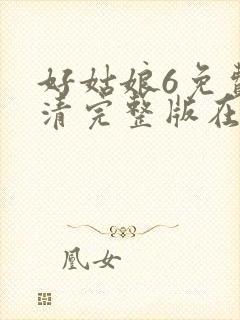 好姑娘6免费
清完整版在
凰女